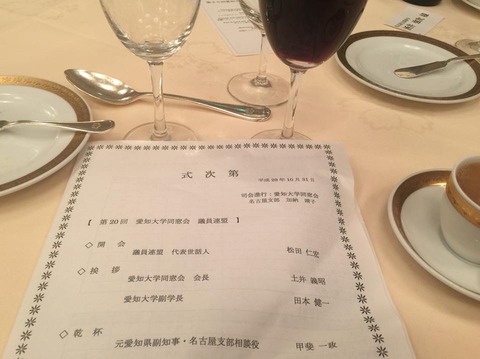 式次第
平成28年10月31日
司会進行：愛知大学同窓会
名古屋支部 加納
【 第20回 愛知大学同窓会 議員連盟 】
◇ 開 会
議員連盟 代表世話人 松田 仁宏
◇ 挨 拶
愛知大学同窓会 会長 土井 義昭
愛知大学副学長 田本 健一
◇ 乾 杯
元愛知県副知事・名古屋支部相談役 甲斐 一政